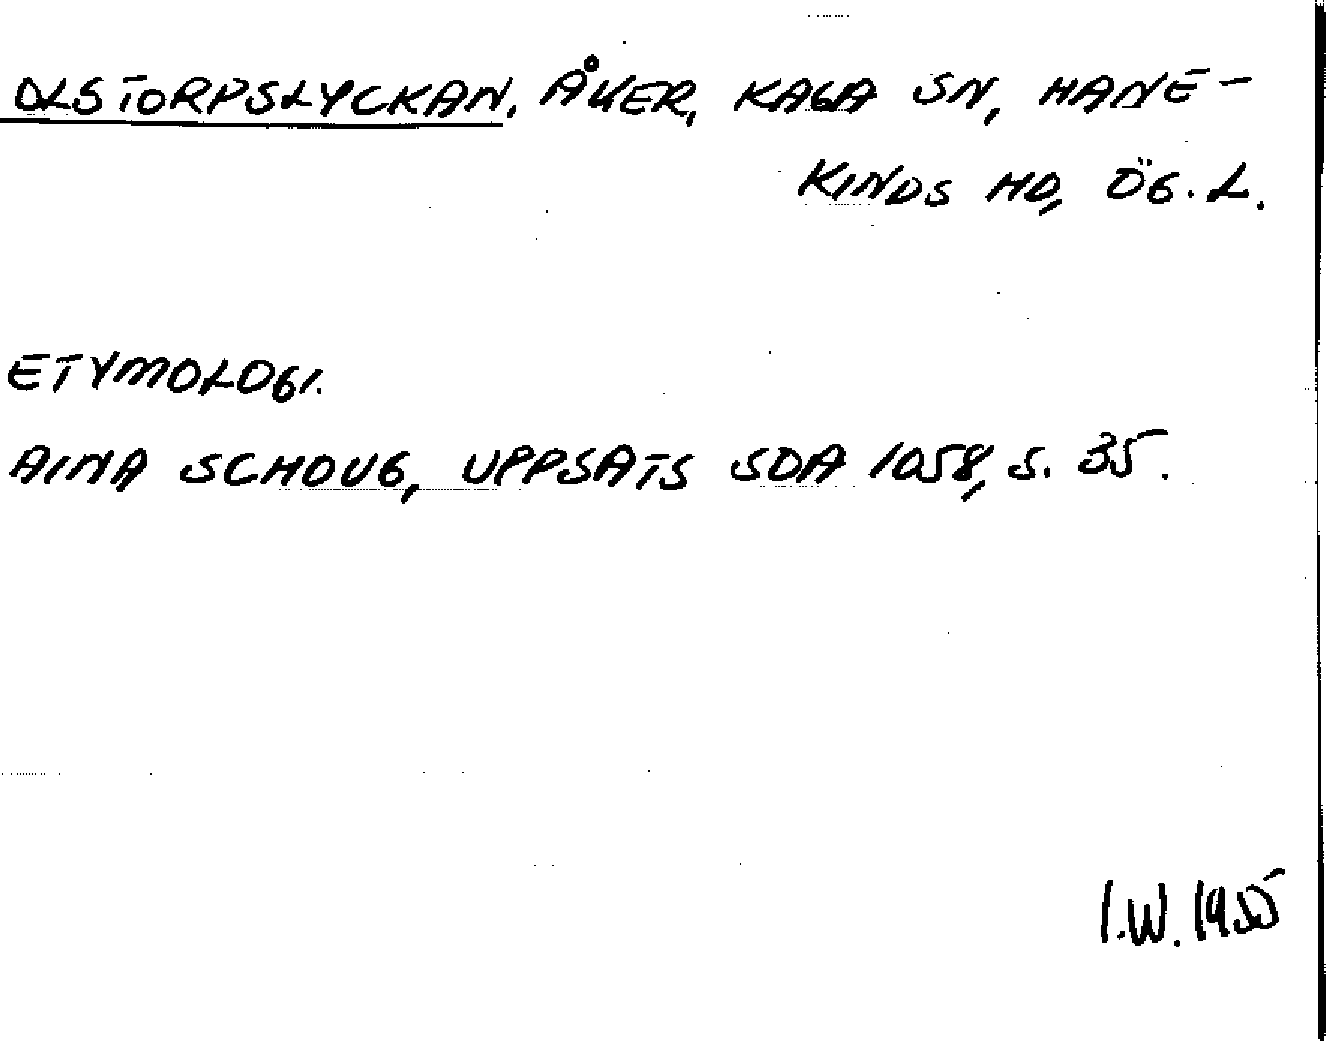 OLSTORPSLYCKAN, ÅKER, KAGA SN, HANE-
KINDS HD, ÖG. L.
ETYMOLOGI.
AINA SCHOUG, UPPSATS SOA 1058, S. 35.
I.W. 1955